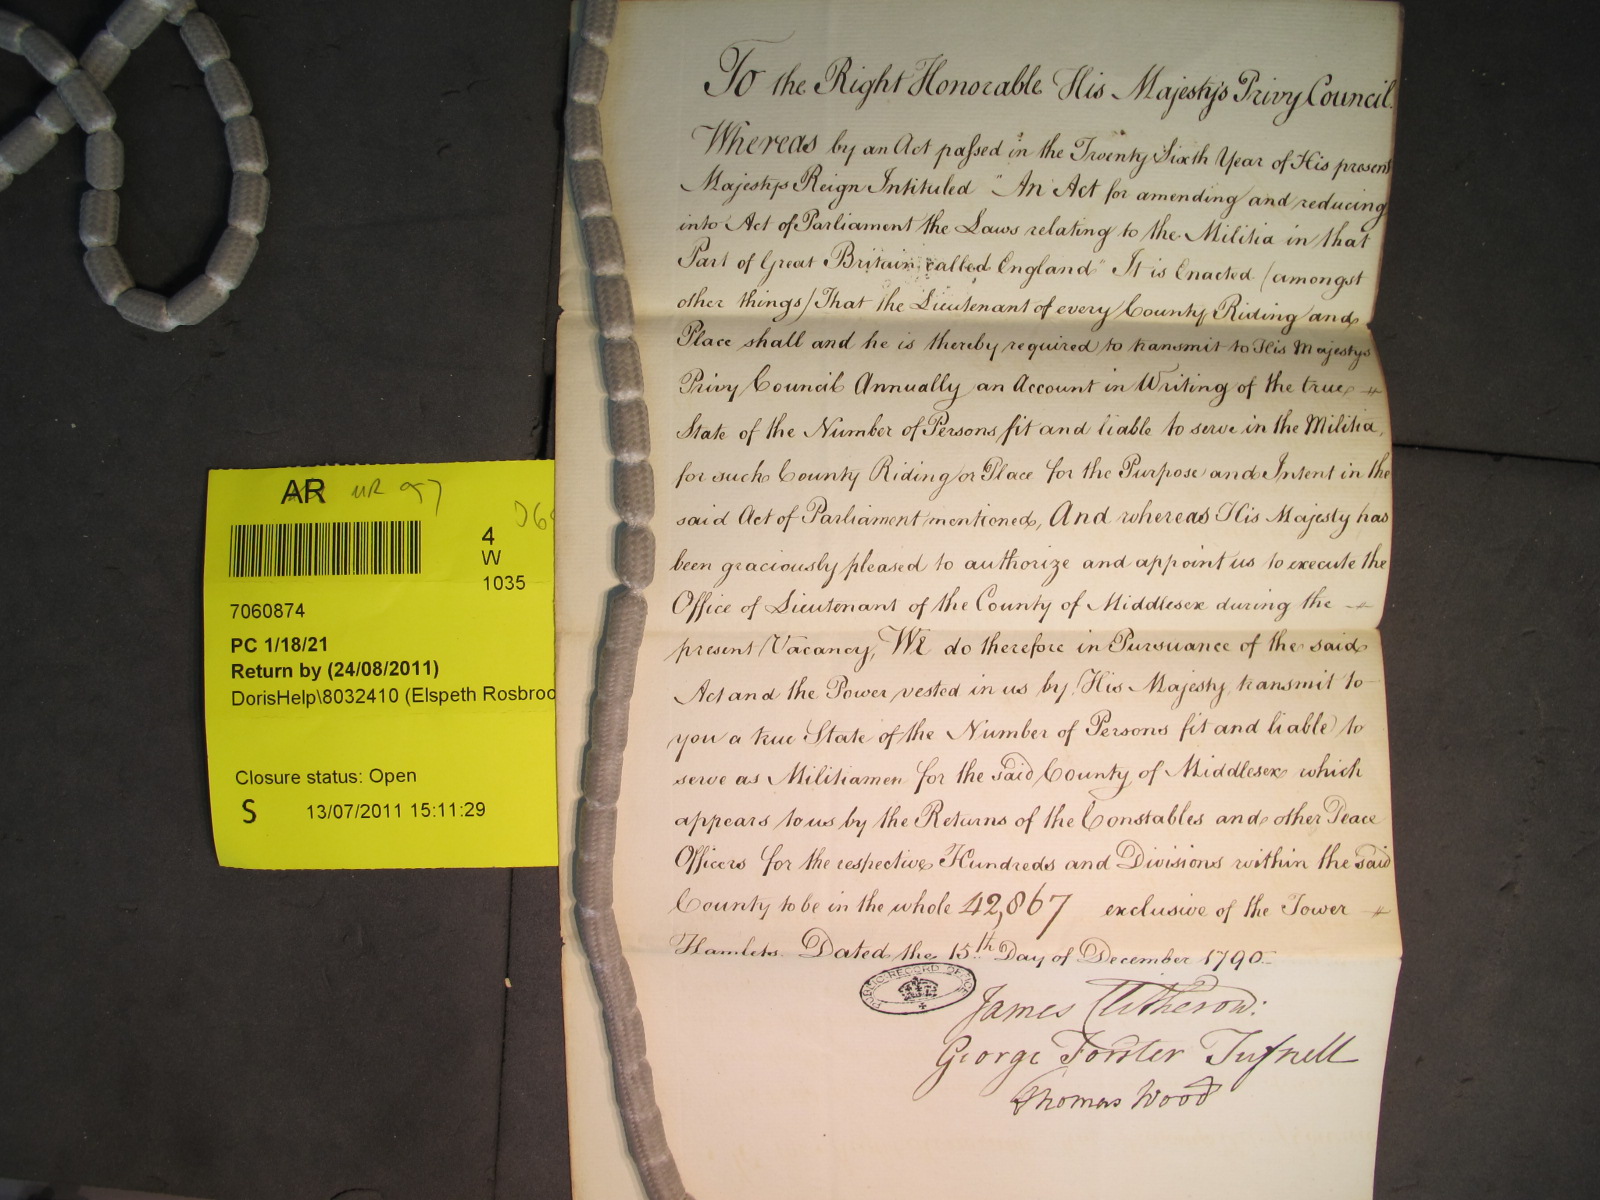 To the Right Honorable His Majesty's Privy Council.
Whereas by an Act passed in the Twenty Sixth Year of His present
Majestys Reign Intituled "An Act for amending and reducing
into Act of Parliament the Laws relating to the Militia in that
Part of Great Britain called England" It is Enacted (amongst
other things) That the Lieutenant of every County Riding and
Place shall and he is thereby required to transmit to His Majestys
Privy Council Annually an Account in Writing of the true
State of the Number of Persons fit and liable to serve in the Militia,
for such County Riding or Place for the Purpose and Intent in the
said Act of Parliament mentioned, And whereas His Majesty has
been graciously pleased to authorize and appoint us to execute the
Office of Lieutenant of the County of Middlesex during the
present Vacancy, We do therefore in Pursuance of the said
Act and the Power vested in us by His Majesty transmit to
you a true State of the Number of Persons fit and liable to
serve as Militiamen for the said County of Middlesex which
appears to us by the Returns of the Constables and other Peace
Officers for the respective Hundreds and Divisions within the said
County to be in the whole 42,867 exclusive of the Tower
Hamlets. Dated the 15th Day of December 1790
PUBLIC RECORD OFFICE
James Clitherow:
George Forster Tufnell
Thomas Wood
AR
4
W
1035
7060874
PC 1/18/21
Return by (24/08/2011)
DorisHelp\8032410 (Elspeth Rosbroo
Closure status: Open
S 13/07/2011 15:11:29